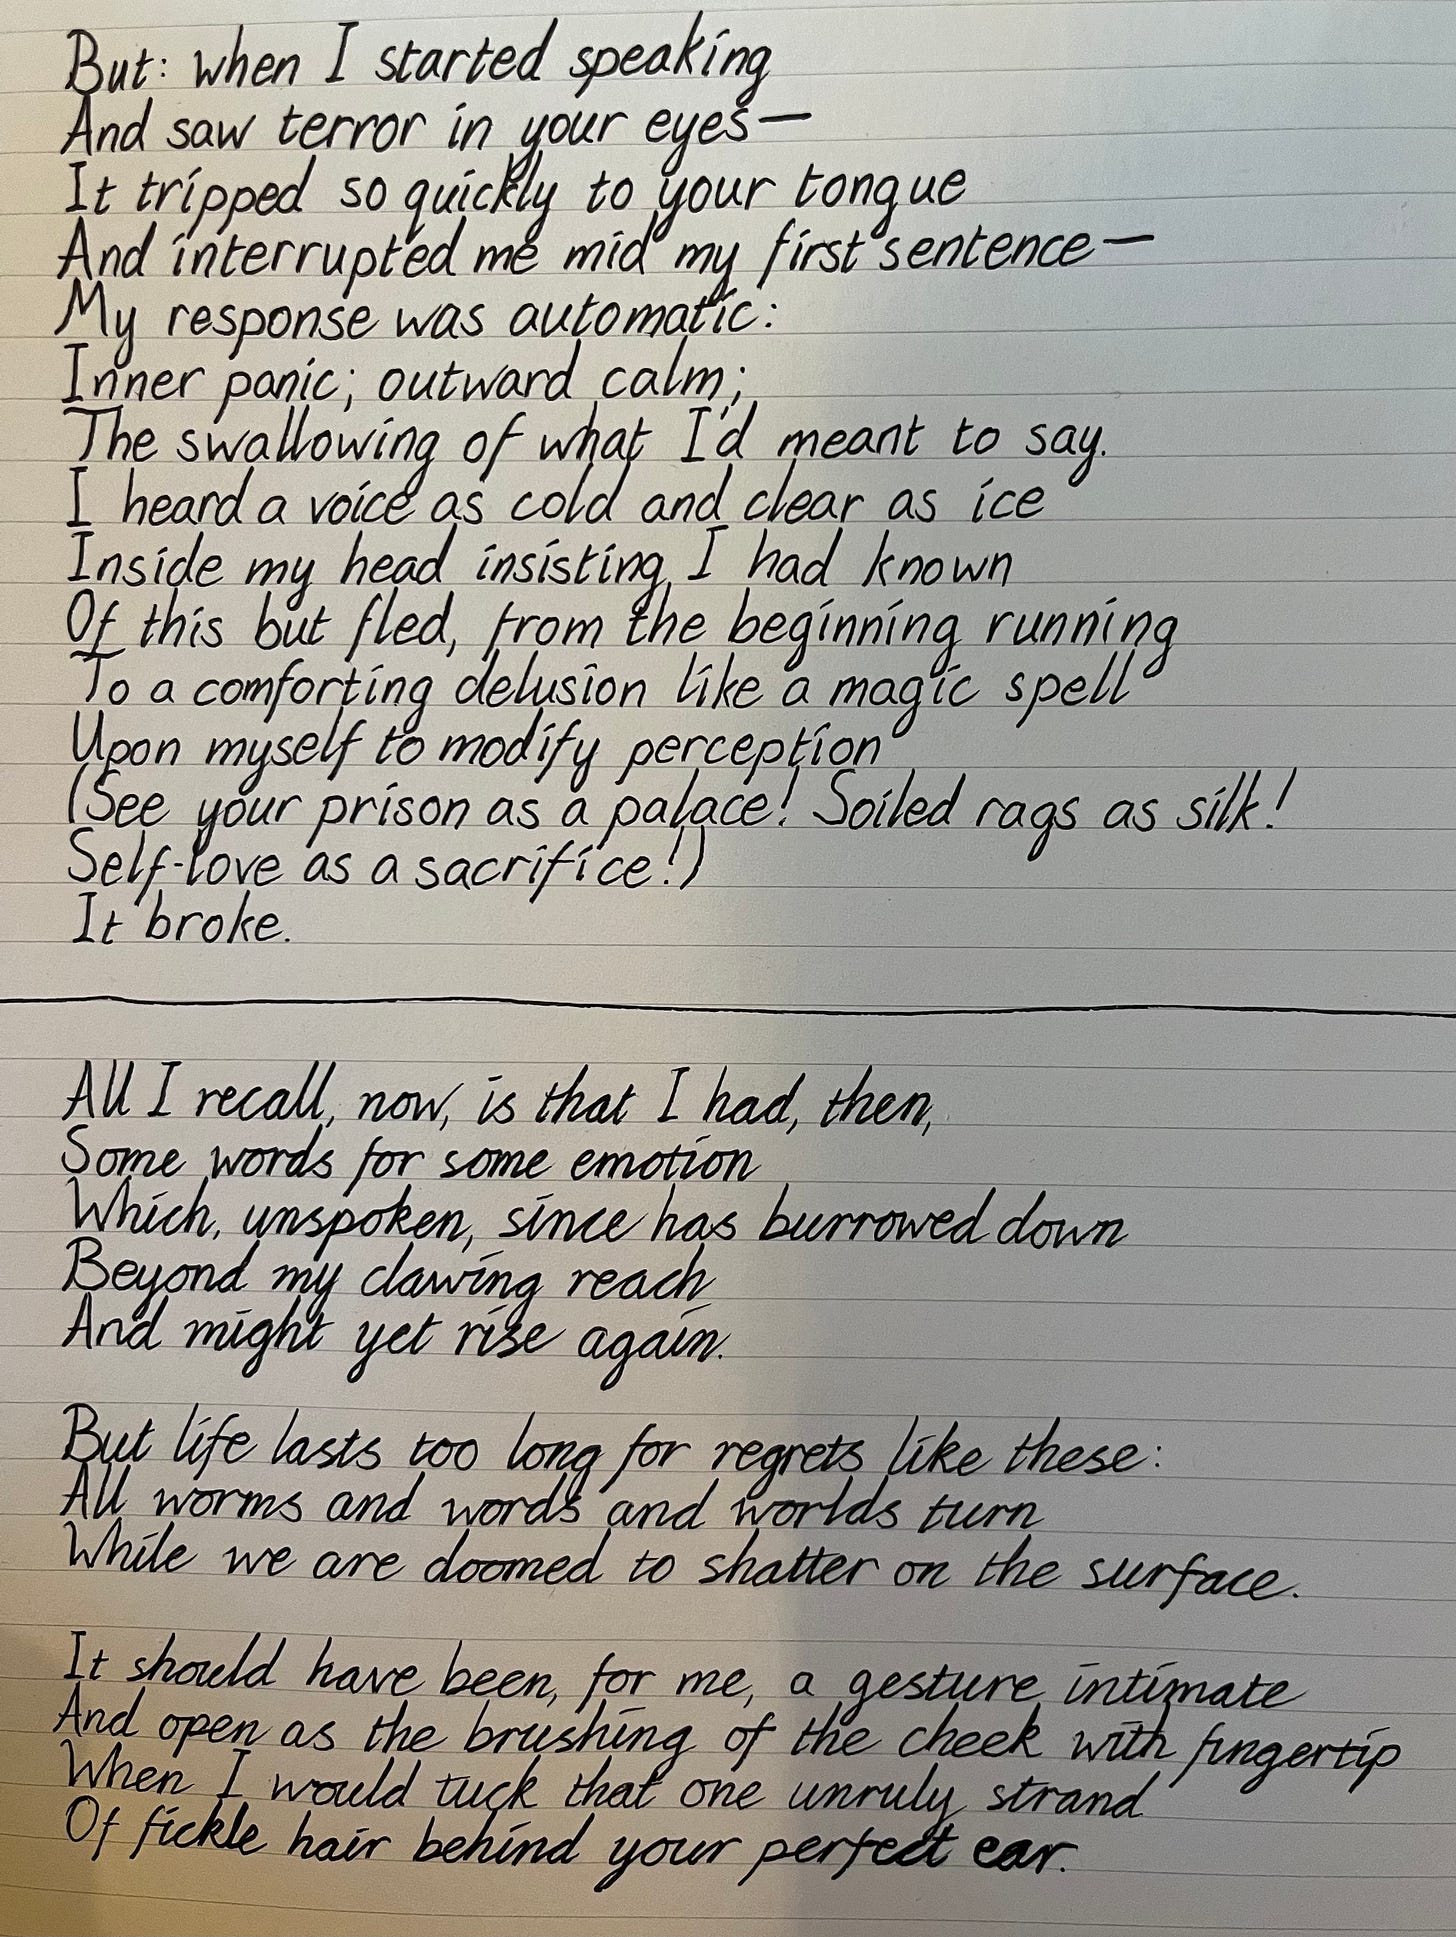 But: when I started speaking
And saw terror in your eyes—
It tripped so quickly to your tongue
And interrupted me mid my first sentence—
My response was automatic:
Inner panic; outward calm;
The swallowing of what I'd meant to say.
I heard a voice as cold and clear as ice
Inside my head insisting I had known
Of this but fled, from the beginning running
To a comforting delusion like a magic spell
Upon myself to modify perception
(See your prison as a palace! Soiled rags as silk!
Self-love as a sacrifice!)
It broke.
All I recall, now, is that I had, then,
Some words for some emotion
Which, unspoken, since has burrowed down
Beyond my clawing reach
And might yet rise again.
But life lasts too long for regrets like these:
All worms and words and worlds turn
While we are doomed to shatter on the surface.
It should have been, for me, a gesture intimate
And open as the brushing of the cheek with fingertip
When I would tuck that one unruly strand
Of fickle hair behind your perfect ear.